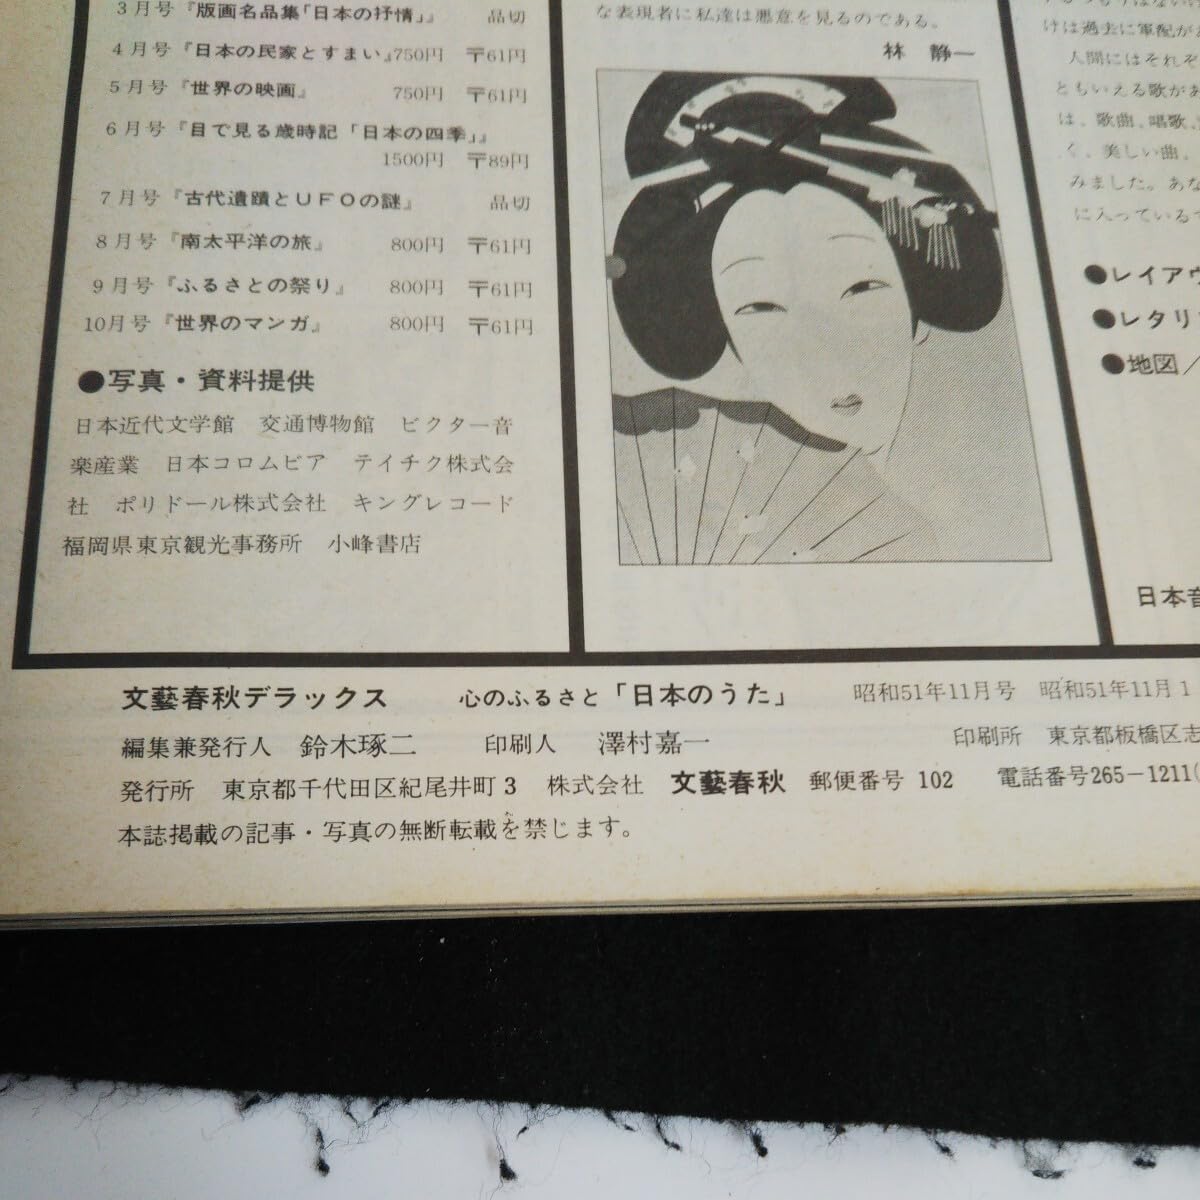 3月号『版画名品集「日本の抒情」』 品切
4月号『日本の民家とすまい』750円 〒61円
5月号『世界の映画』 750円 〒61円
6月号『目で見る歳時記「日本の四季」』
1500円 〒89円
7月号『古代遺蹟とUFOの謎』 品切
8月号『南太平洋の旅』 800円 〒61円
9月号『ふるさとの祭り』 800円 〒61円
10月号『世界のマンガ』 800円 〒61円
●写真・資料提供
日本近代文学館 交通博物館 ビクター音
楽産業 日本コロムビア テイチク株式会
社 ポリドール株式会社 キングレコード
福岡県東京観光事務所 小峰書店
な表現者に私達は悪意を見るのである。
林 静一
けは過去に軍配が
人間にはそれぞ
ともいえる歌があ
は、歌曲、唱歌、
く、美しい曲、
みました。あな
に入っている
●レイアウ
●レタリ
●地図／
日本音
文藝春秋デラックス 心のふるさと「日本のうた」 昭和51年11月号 昭和51年11月1
編集兼発行人 鈴木琢二 印刷人 澤村嘉一 印刷所 東京都板橋区志
発行所 東京都千代田区紀尾井町3 株式会社 文藝春秋 郵便番号 102 電話番号265−1211(
本誌掲載の記事・写真の無断転載を禁じます。